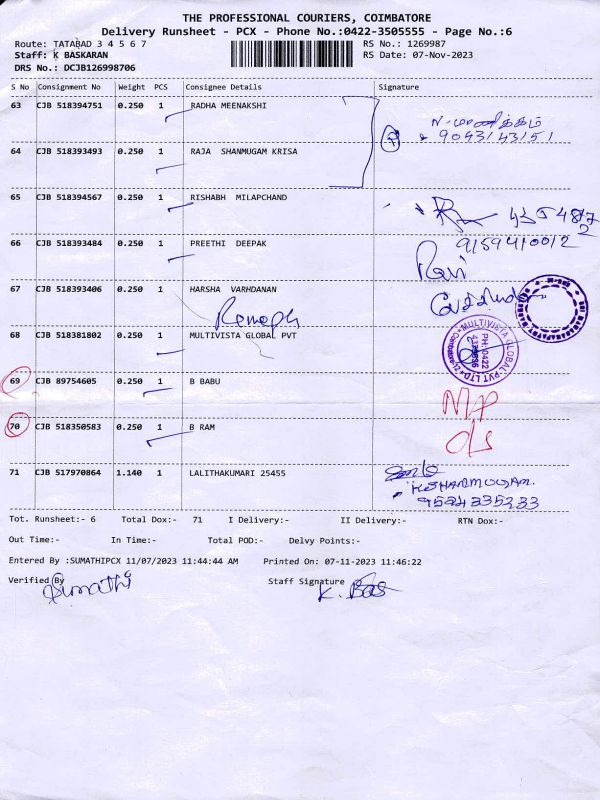 THE PROFESSIONAL COURIERS, COIMBATORE
Delivery Runsheet - PCX - Phone No.:0422-3505555 - Page No.:6
Route: TATABAD 3 4 5 6 7 RS No.: 1269987
Staff: K BASKARAN RS Date: 07-Nov-2023
DRS No.: DCJB126998706
S No Consignment No Weight PCS Consignee Details Signature
63 CJB 518394751 0.250 1 RADHA MEENAKSHI
ந. மாணிக்கம்
9043143151
64 CJB 518393493 0.250 1 RAJA SHANMUGAM KRISA
65 CJB 518394567 0.250 1 RISHABH MILAPCHAND
66 CJB 518393484 0.250 1 PREETHI DEEPAK
9159410012
Ravi
67 CJB 518393406 0.250 1 HARSHA VARHDANAN
68 CJB 518381802 0.250 1 MULTIVISTA GLOBAL PVT
MULTIVISTA GLOBAL PVT LTD
PH: 0422
69 CJB 89754605 0.250 1 B BABU
N/P
70 CJB 518350583 0.250 1 B RAM
O/S
71 CJB 517970864 1.140 1 LALITHAKUMARI 25455
9524335233
Tot. Runsheet:- 6 Total Dox:- 71 I Delivery:- II Delivery:- RTN Dox:-
Out Time:- In Time:- Total POD:- Delvy Points:-
Entered By :SUMATHIPCX 11/07/2023 11:44:44 AM Printed On: 07-11-2023 11:46:22
Verified By Staff Signature
Sumathi K. Bas